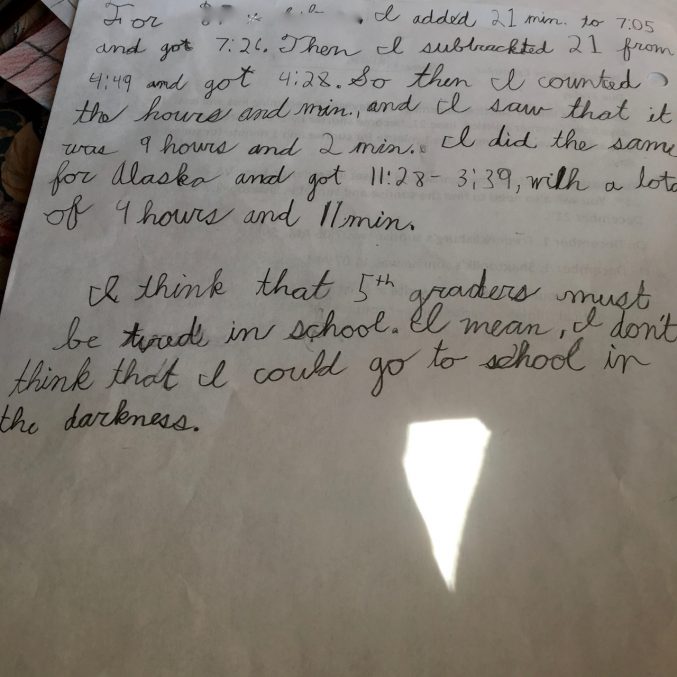 For . I added 21 min. to 7:05
and got 7:26. Then I subtrackted 21 from
4:49 and got 4:28. So then I counted
the hours and min., and I saw that it
was 9 hours and 2 min. I did the same
for Alaska and got 11:28- 3:39, with a lota
of 4 hours and 11 min.
I think that 5th graders must
be in school. I mean, I don't
think that I could go to school in
the darkness.